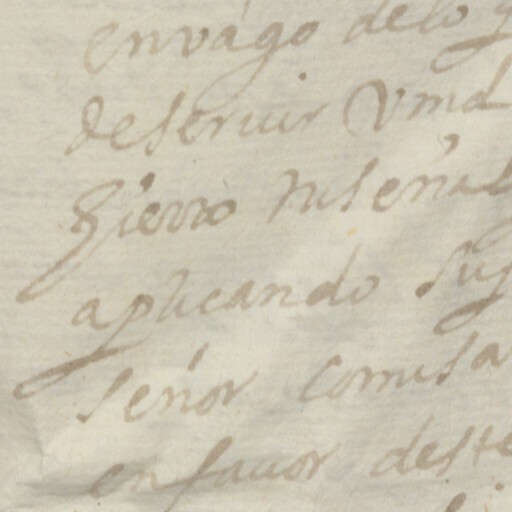 en vago de lo q
de seruir Vmd
Hierro ni señal
aplicando su
señor Comisa
en fauor deste